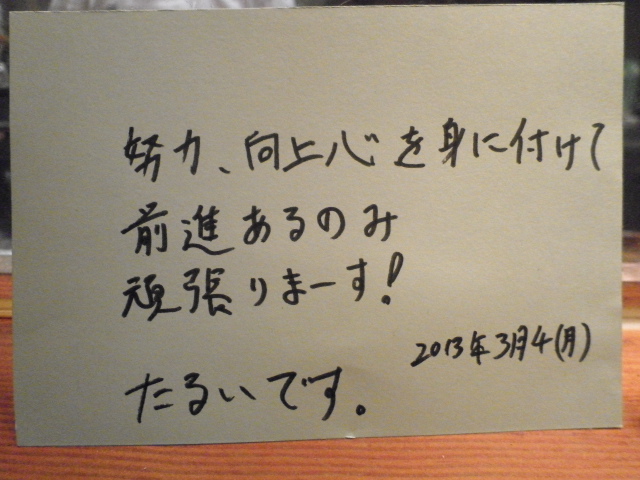 努力、向上心を身に付けて
前進あるのみ
頑張りまーす!
2013年3月4(月)
たるいです。